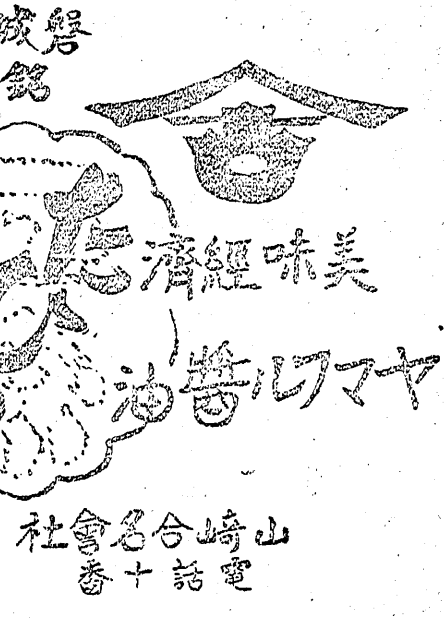 磐城
銘
美味經濟
ヤマフル醬油
山崎合名會社
電話十番